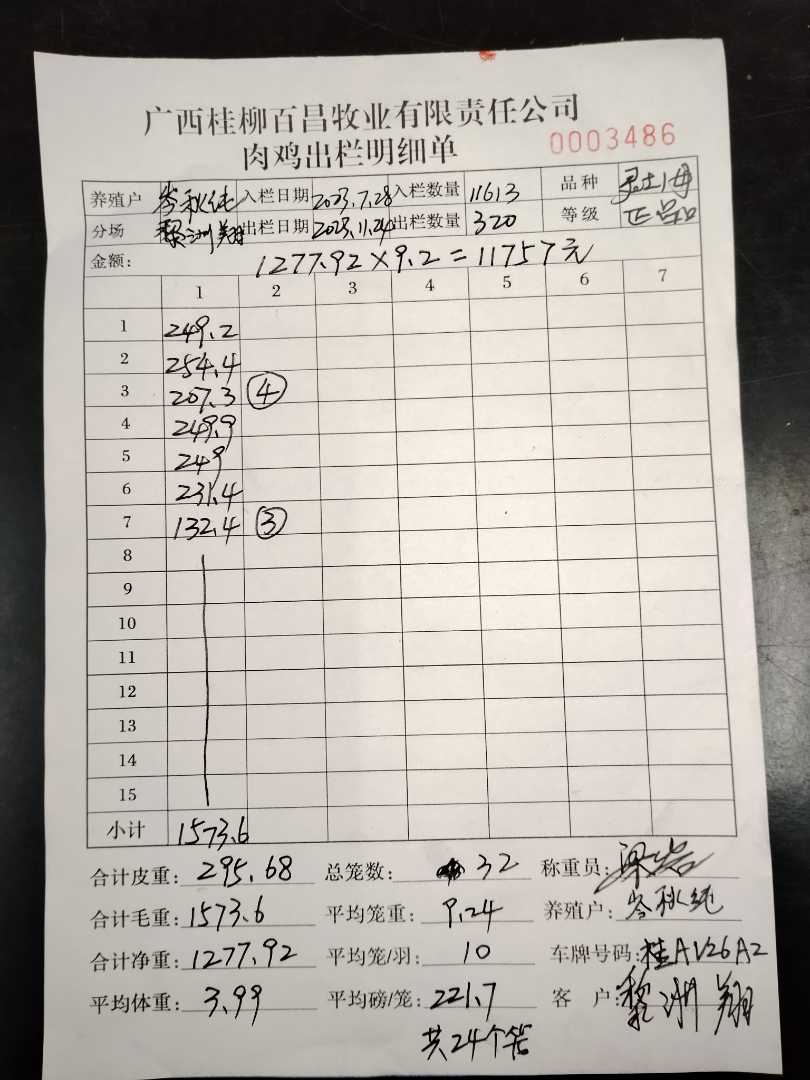 广西桂柳百昌牧业有限责任公司
肉鸡出栏明细单 0003486
养殖户 岑秋纯 入栏日期 2023.7.28 入栏数量 11613 品种 灵土1母
分场 黎洲翔 出栏日期 2023.11.24 出栏数量 320 等级 正品
金额: 1277.92×9.2=11757元
1 2 3 4 5 6 7
1 249.2
2 254.4
3 207.3 ④
4 249.9
5 249
6 231.4
7 132.4 ③
8
9
10
11
12
13
14
15
小计 1573.6
合计皮重: 295.68 总笼数: 32 称重员:
合计毛重: 1573.6 平均笼重: 9.24 养殖户: 岑秋纯
合计净重: 1277.92 平均笼/羽: 10 车牌号码: 桂AV26A2
平均体重: 3.99 平均磅/笼: 221.7 客户: 黎洲翔
共24个